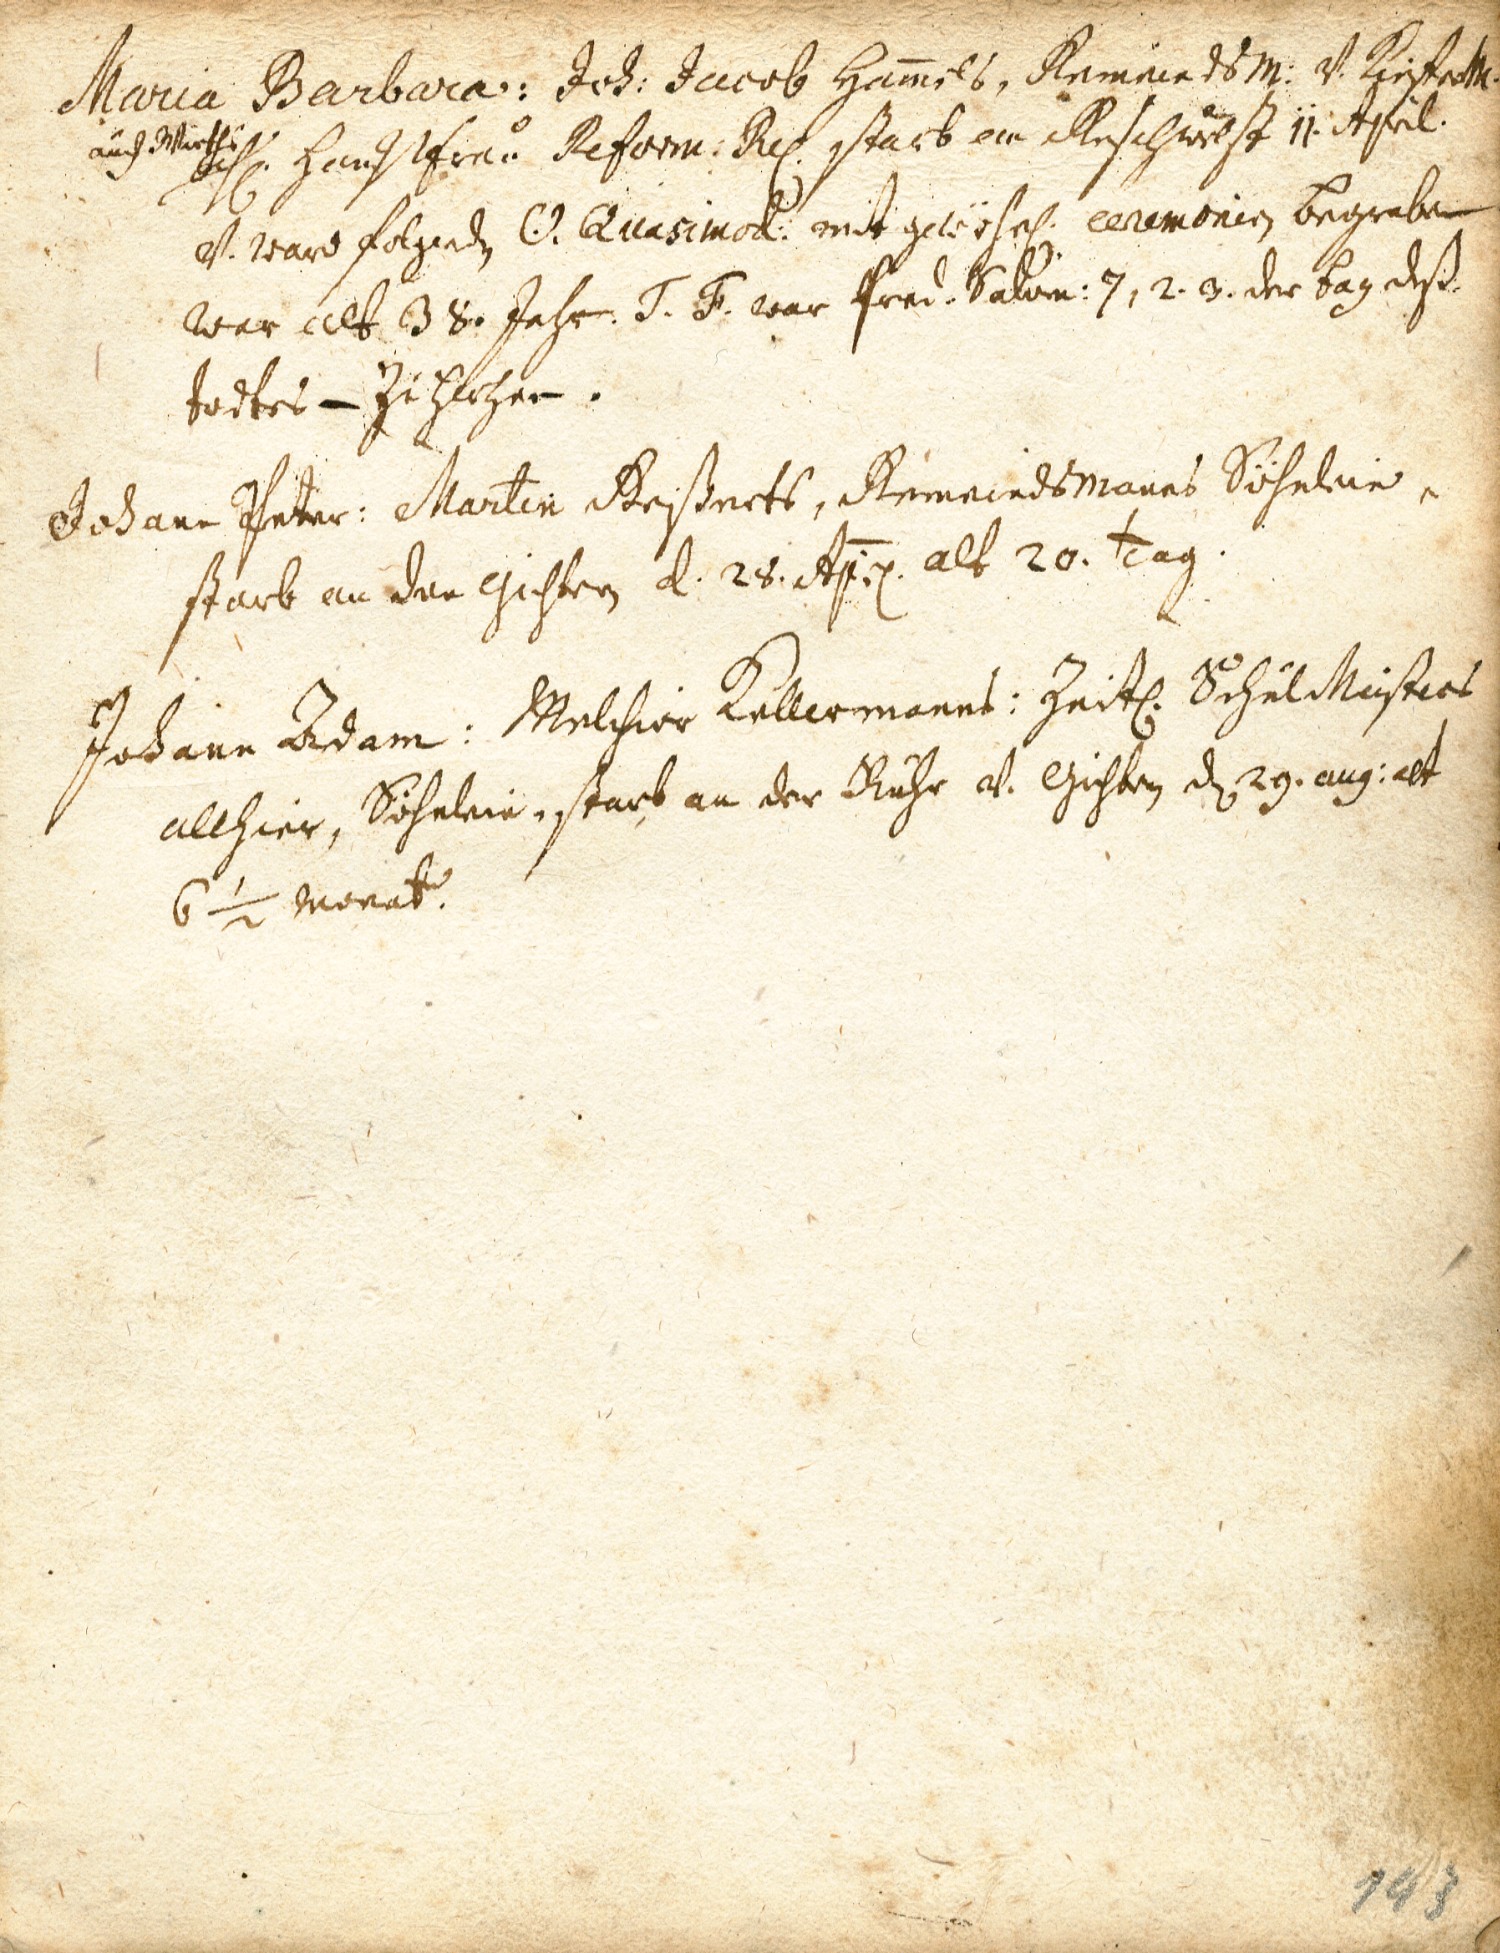 Maria Barbara: Joh: Jacob Ham̅els, Gemeindsm: v. KüfferM.
auch Wirths
Haußfrau Reform: Rel. starb am Geschwulst 11. April.
v. ward folgend Quasimod: mit gewöhnl. ceremonien begraben
war alt 38. Jahr. T. F. war Pred. Salom: 7, 2. 3. der tag deß
todtes —
Johann Peter: Martin Geißerts, Gemeindsmanns Söhnlein,
starb an den Gichtern d. 28. Apr. alt 20. tag.
Johann Adam: Melchior Kellermanns: Zeitl. SchulMeisters
allhier, Söhnlein, starb an der Ruhr v. Gichtern d. 29. aug: alt
6 1/2 Monat.
143